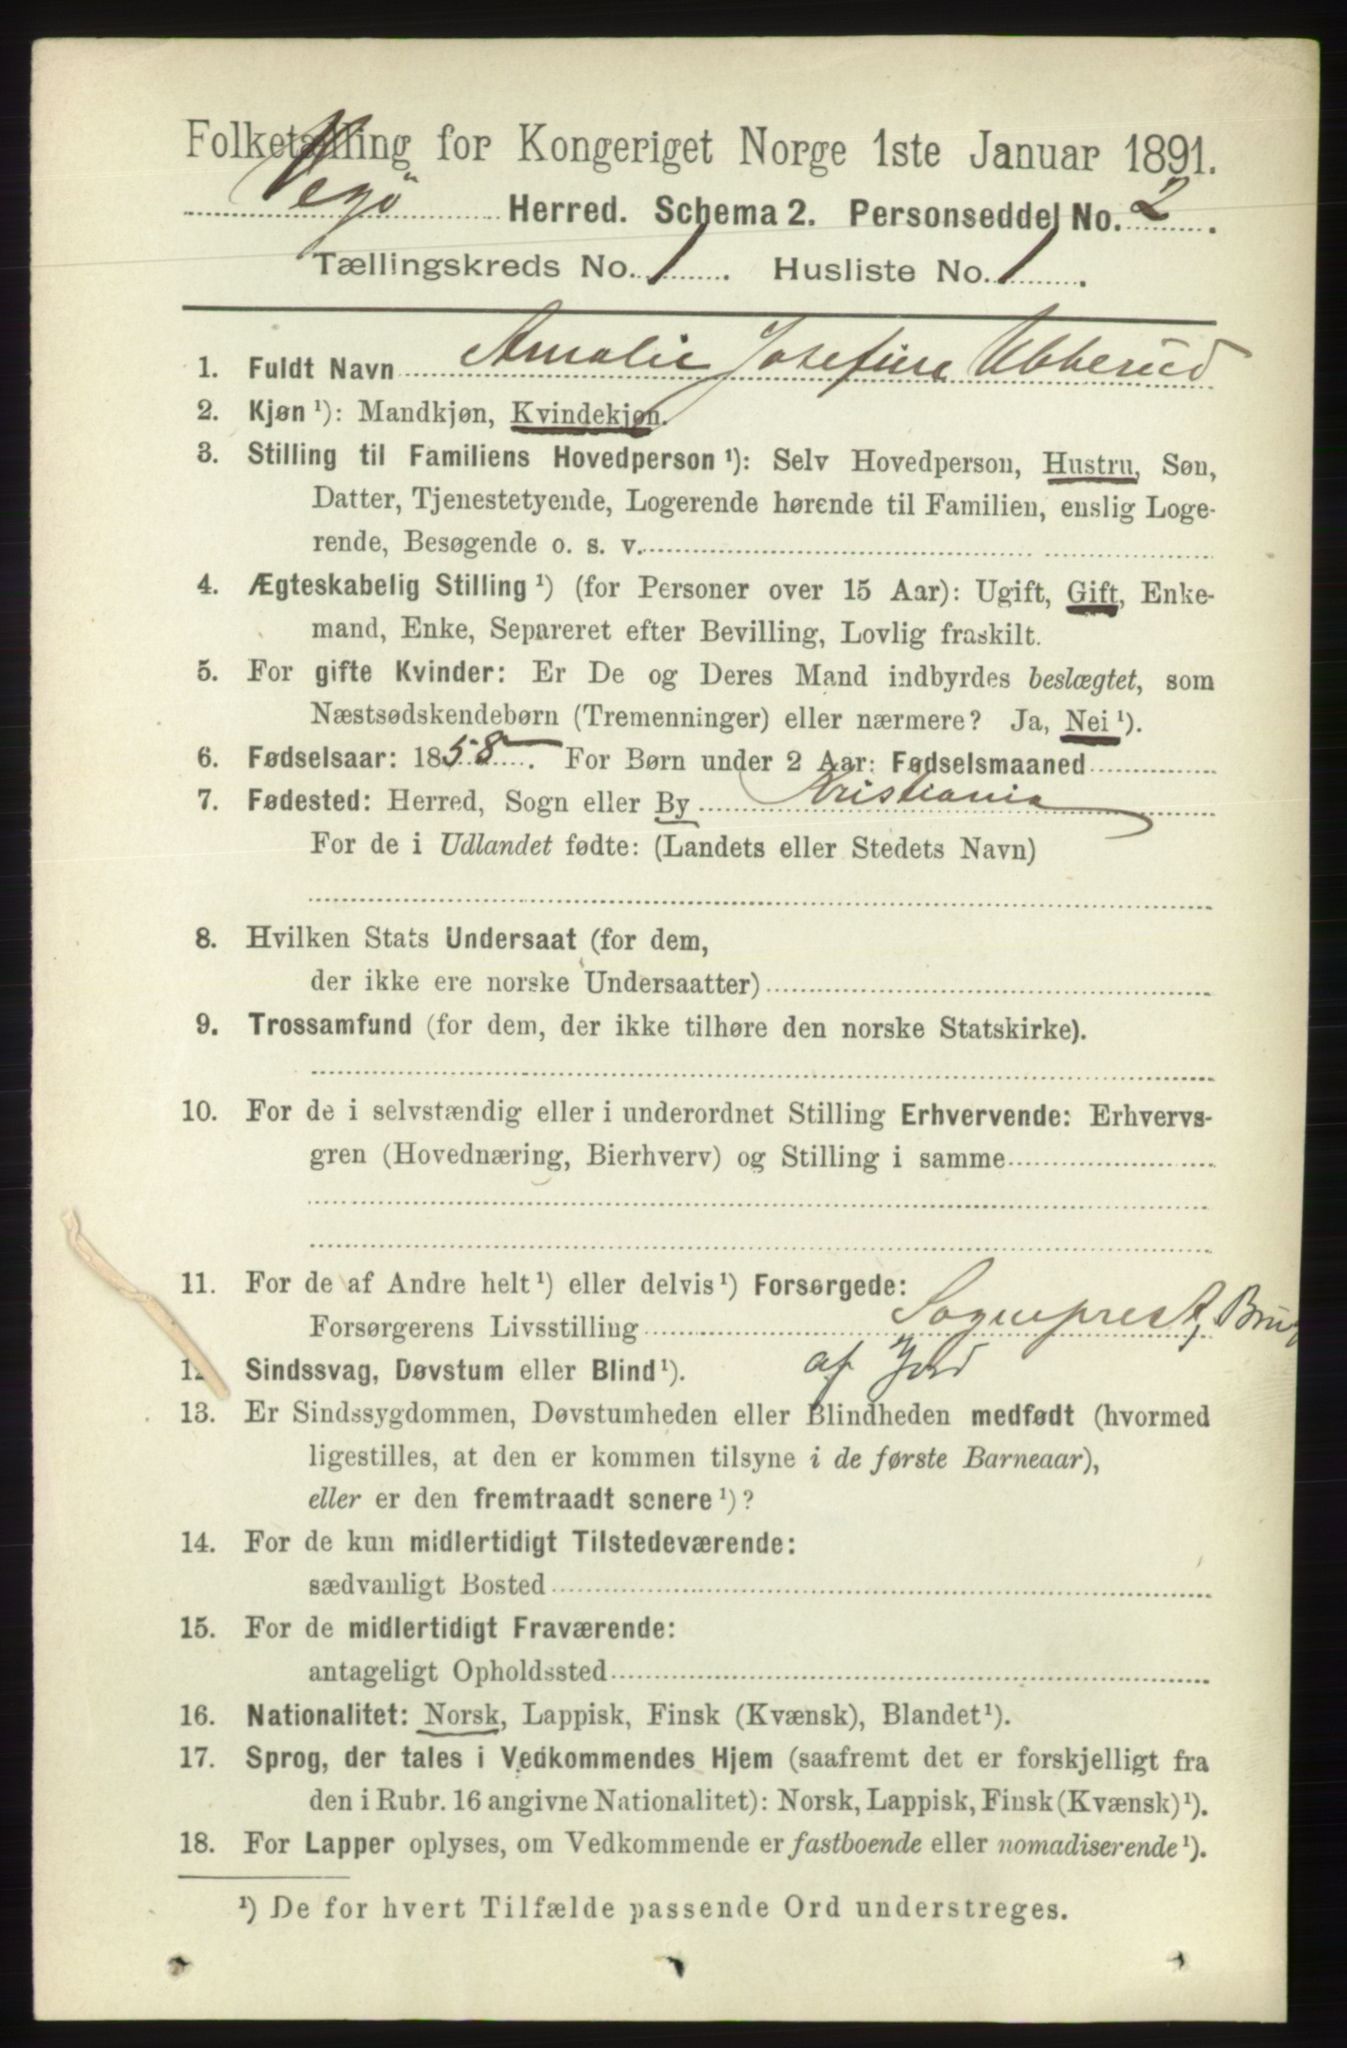 Folketælling for Kongeriget Norge 1ste Januar 1891.
Vegø Herred. Schema 2. Personseddel No. 2.
Tællingskreds No. 1. Husliste No. 1.
1. Fuldt Navn Amalie Josefine Ubberud
2. Kjøn ¹): Mandkjøn, Kvindekjøn.
3. Stilling til Familiens Hovedperson ¹): Selv Hovedperson, Hustru, Søn,
Datter, Tjenestetyende, Logerende hørende til Familien, enslig Loge-
rende, Besøgende o. s. v.
4. Ægteskabelig Stilling ¹) (for Personer over 15 Aar): Ugift, Gift, Enke-
mand, Enke, Separeret efter Bevilling, Lovlig fraskilt.
5. For gifte Kvinder: Er De og Deres Mand indbyrdes beslægtet, som
Næstsødskendebørn (Tremenninger) eller nærmere? Ja, Nei ¹).
6. Fødselsaar: 1858. For Børn under 2 Aar: Fødselsmaaned
7. Fødested: Herred, Sogn eller By Kristiania
For de i Udlandet fødte: (Landets eller Stedets Navn)
8. Hvilken Stats Undersaat (for dem,
der ikke ere norske Undersaatter)
9. Trossamfund (for dem, der ikke tilhøre den norske Statskirke).
10. For de i selvstændig eller i underordnet Stilling Erhvervende: Erhvervs-
gren (Hovednæring, Bierhverv) og Stilling i samme
11. For de af Andre helt ¹) eller delvis ¹) Forsørgede:
Forsørgerens Livsstilling Sogneprest, Brug
af Jord
12. Sindssvag, Døvstum eller Blind ¹).
13. Er Sindssygdommen, Døvstumheden eller Blindheden medfødt (hvormed
ligestilles, at den er kommen tilsyne i de første Barneaar),
eller er den fremtraadt senere ¹)?
14. For de kun midlertidigt Tilstedeværende:
sædvanligt Bosted
15. For de midlertidigt Fraværende:
antageligt Opholdssted
16. Nationalitet: Norsk, Lappisk, Finsk (Kvænsk), Blandet ¹).
17. Sprog, der tales i Vedkommendes Hjem (saafremt det er forskjelligt fra
den i Rubr. 16 angivne Nationalitet): Norsk, Lappisk, Finsk (Kvænsk) ¹).
18. For Lapper oplyses, om Vedkommende er fastboende eller nomadiserende ¹).
¹) De for hvert Tilfælde passende Ord understreges.